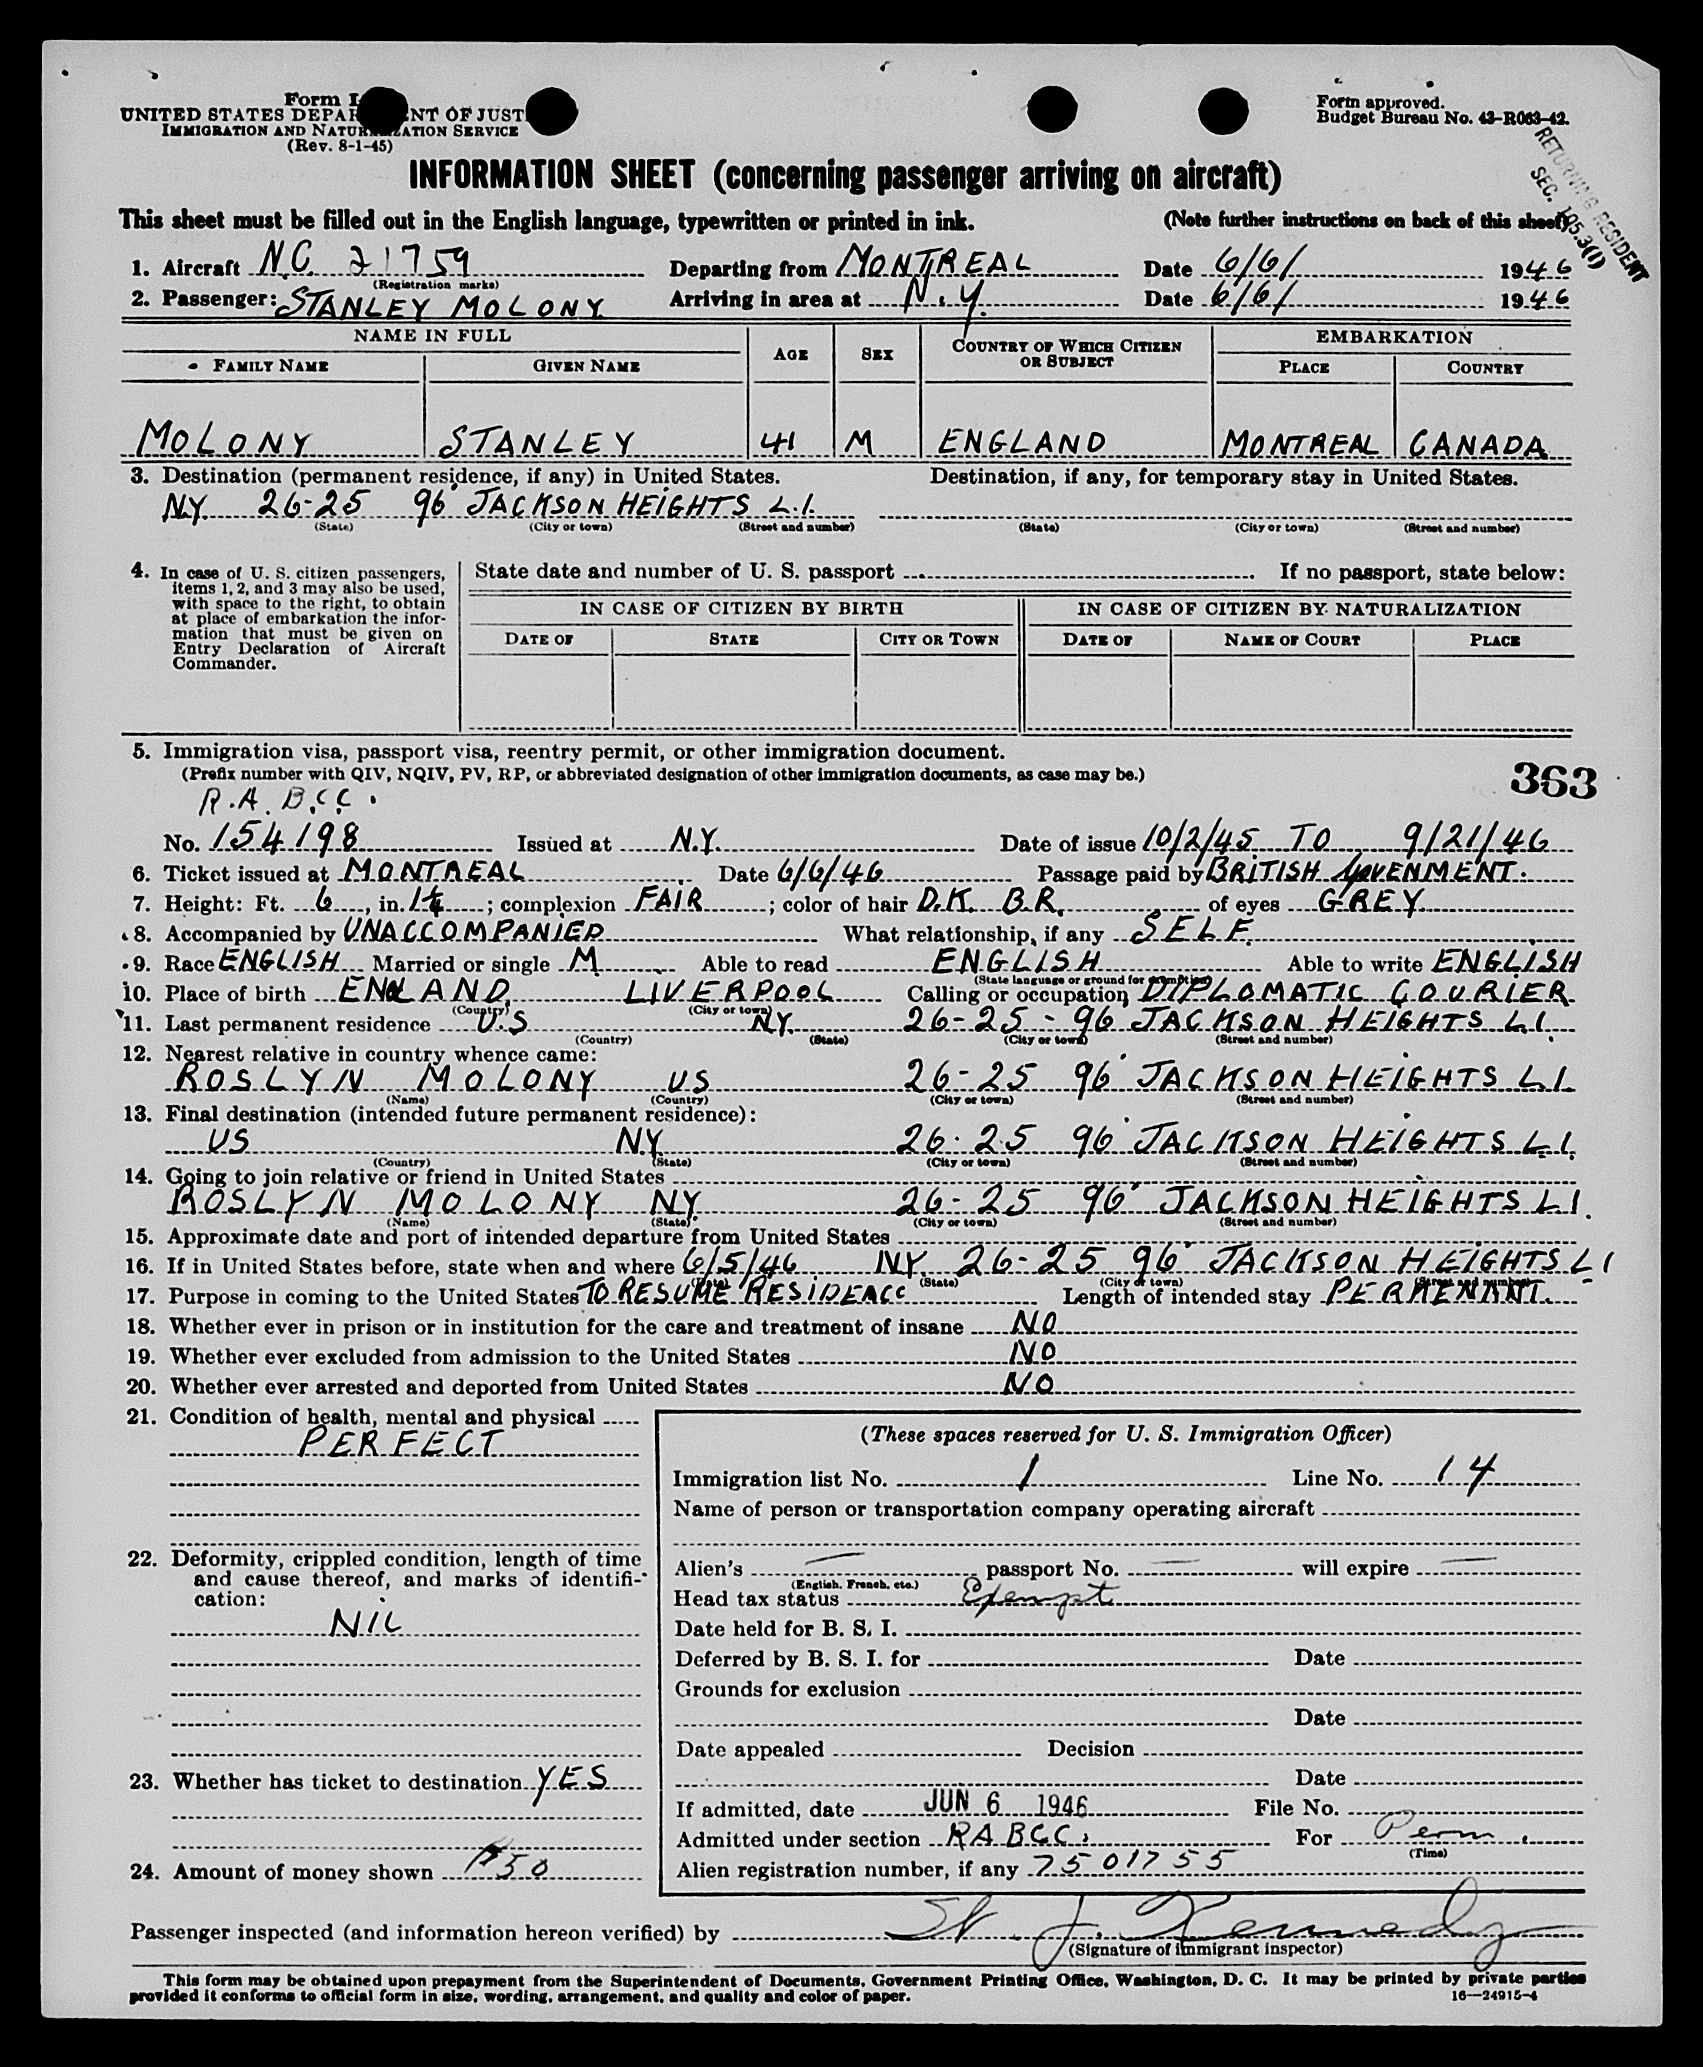 Form I
UNITED STATES DEPAR NT OF JUST
IMMIGRATION AND NATURALIZATION SERVICE
(Rev. 8-1-45)
Form approved.
Budget Bureau No. 43-R063-42.
RETURNING RESIDENT
SEC. 195.3(1)
INFORMATION SHEET (concerning passenger arriving on aircraft)
This sheet must be filled out in the English language, typewritten or printed in ink. (Note further instructions on back of this sheet)
1. Aircraft N.C. 21759 Departing from MONTREAL Date 6/6/ 1946
(Registration marks)
2. Passenger: STANLEY MOLONY Arriving in area at N.Y. Date 6/6/ 1946
NAME IN FULL AGE SEX COUNTRY OF WHICH CITIZEN OR SUBJECT EMBARKATION
FAMILY NAME GIVEN NAME PLACE COUNTRY
MOLONY STANLEY 41 M ENGLAND MONTREAL CANADA
3. Destination (permanent residence, if any) in United States. Destination, if any, for temporary stay in United States.
N.Y. 26-25 96 JACKSON HEIGHTS L.I.
(State) (City or town) (Street and number) (State) (City or town) (Street and number)
4. In case of U. S. citizen passengers, items 1, 2, and 3 may also be used, with space to the right, to obtain at place of embarkation the information that must be given on Entry Declaration of Aircraft Commander.
State date and number of U. S. passport If no passport, state below:
IN CASE OF CITIZEN BY BIRTH IN CASE OF CITIZEN BY NATURALIZATION
DATE OF STATE CITY OR TOWN DATE OF NAME OF COURT PLACE
5. Immigration visa, passport visa, reentry permit, or other immigration document.
(Prefix number with QIV, NQIV, PV, RP, or abbreviated designation of other immigration documents, as case may be.)
363
R.A. B.C.C.
No. 154198 Issued at N.Y. Date of issue 10/2/45 TO 9/21/46
6. Ticket issued at MONTREAL Date 6/6/46 Passage paid by BRITISH GOVENMENT.
7. Height: Ft. 6, in. 1¼; complexion FAIR; color of hair D.K. B.R. of eyes GREY
8. Accompanied by UNACCOMPANIED What relationship, if any SELF
9. Race ENGLISH Married or single M Able to read ENGLISH Able to write ENGLISH
(State language or ground for exemption)
10. Place of birth ENGLAND, LIVERPOOL Calling or occupation DIPLOMATIC COURIER
(Country) (City or town)
11. Last permanent residence U.S NY. 26-25-96 JACKSON HEIGHTS L.I.
(Country) (State) (City or town) (Street and number)
12. Nearest relative in country whence came:
ROSLYN MOLONY US 26-25 96 JACKSON HEIGHTS L.I.
(Name) (Country) (City or town) (Street and number)
13. Final destination (intended future permanent residence):
US N.Y. 26.25 96 JACKSON HEIGHTS L.I.
(Country) (State) (City or town) (Street and number)
14. Going to join relative or friend in United States
ROSLYN MOLONY NY. 26-25 96 JACKSON HEIGHTS L.I.
(Name) (State) (City or town) (Street and number)
15. Approximate date and port of intended departure from United States
16. If in United States before, state when and where 6/5/46 NY 26-25 96 JACKSON HEIGHTS L I
(Date) (State) (City or town) (Street and number)
17. Purpose in coming to the United States TO RESUME RESIDENCE Length of intended stay PERMENANT.
18. Whether ever in prison or in institution for the care and treatment of insane NO
19. Whether ever excluded from admission to the United States NO
20. Whether ever arrested and deported from United States NO
21. Condition of health, mental and physical
PERFECT
22. Deformity, crippled condition, length of time
and cause thereof, and marks of identifi-
cation:
NIL
23. Whether has ticket to destination YES
24. Amount of money shown $50
(These spaces reserved for U. S. Immigration Officer)
Immigration list No. 1 Line No. 14
Name of person or transportation company operating aircraft
Alien's passport No. will expire
(English, French, etc.)
Head tax status Exempt
Date held for B. S. I.
Deferred by B. S. I. for Date
Grounds for exclusion
Date
Date appealed Decision
Date
If admitted, date JUN 6 1946 File No.
Admitted under section RABCC. For Perm.
(Time)
Alien registration number, if any 7501755
Passenger inspected (and information hereon verified) by W. J. Kennedy
(Signature of immigrant inspector)
This form may be obtained upon prepayment from the Superintendent of Documents, Government Printing Office, Washington, D. C. It may be printed by private parties
provided it conforms to official form in size, wording, arrangement, and quality and color of paper. 16—24915-4